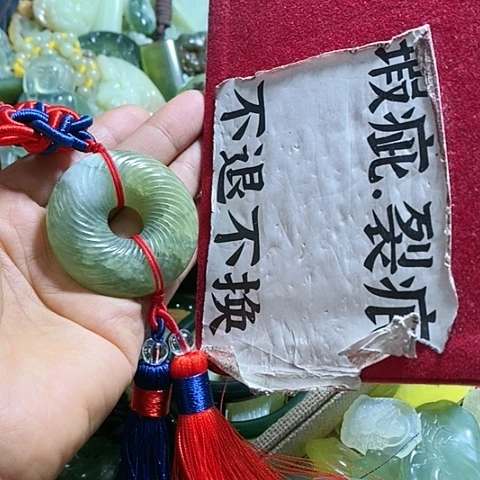 瑕疵.裂
不退不换